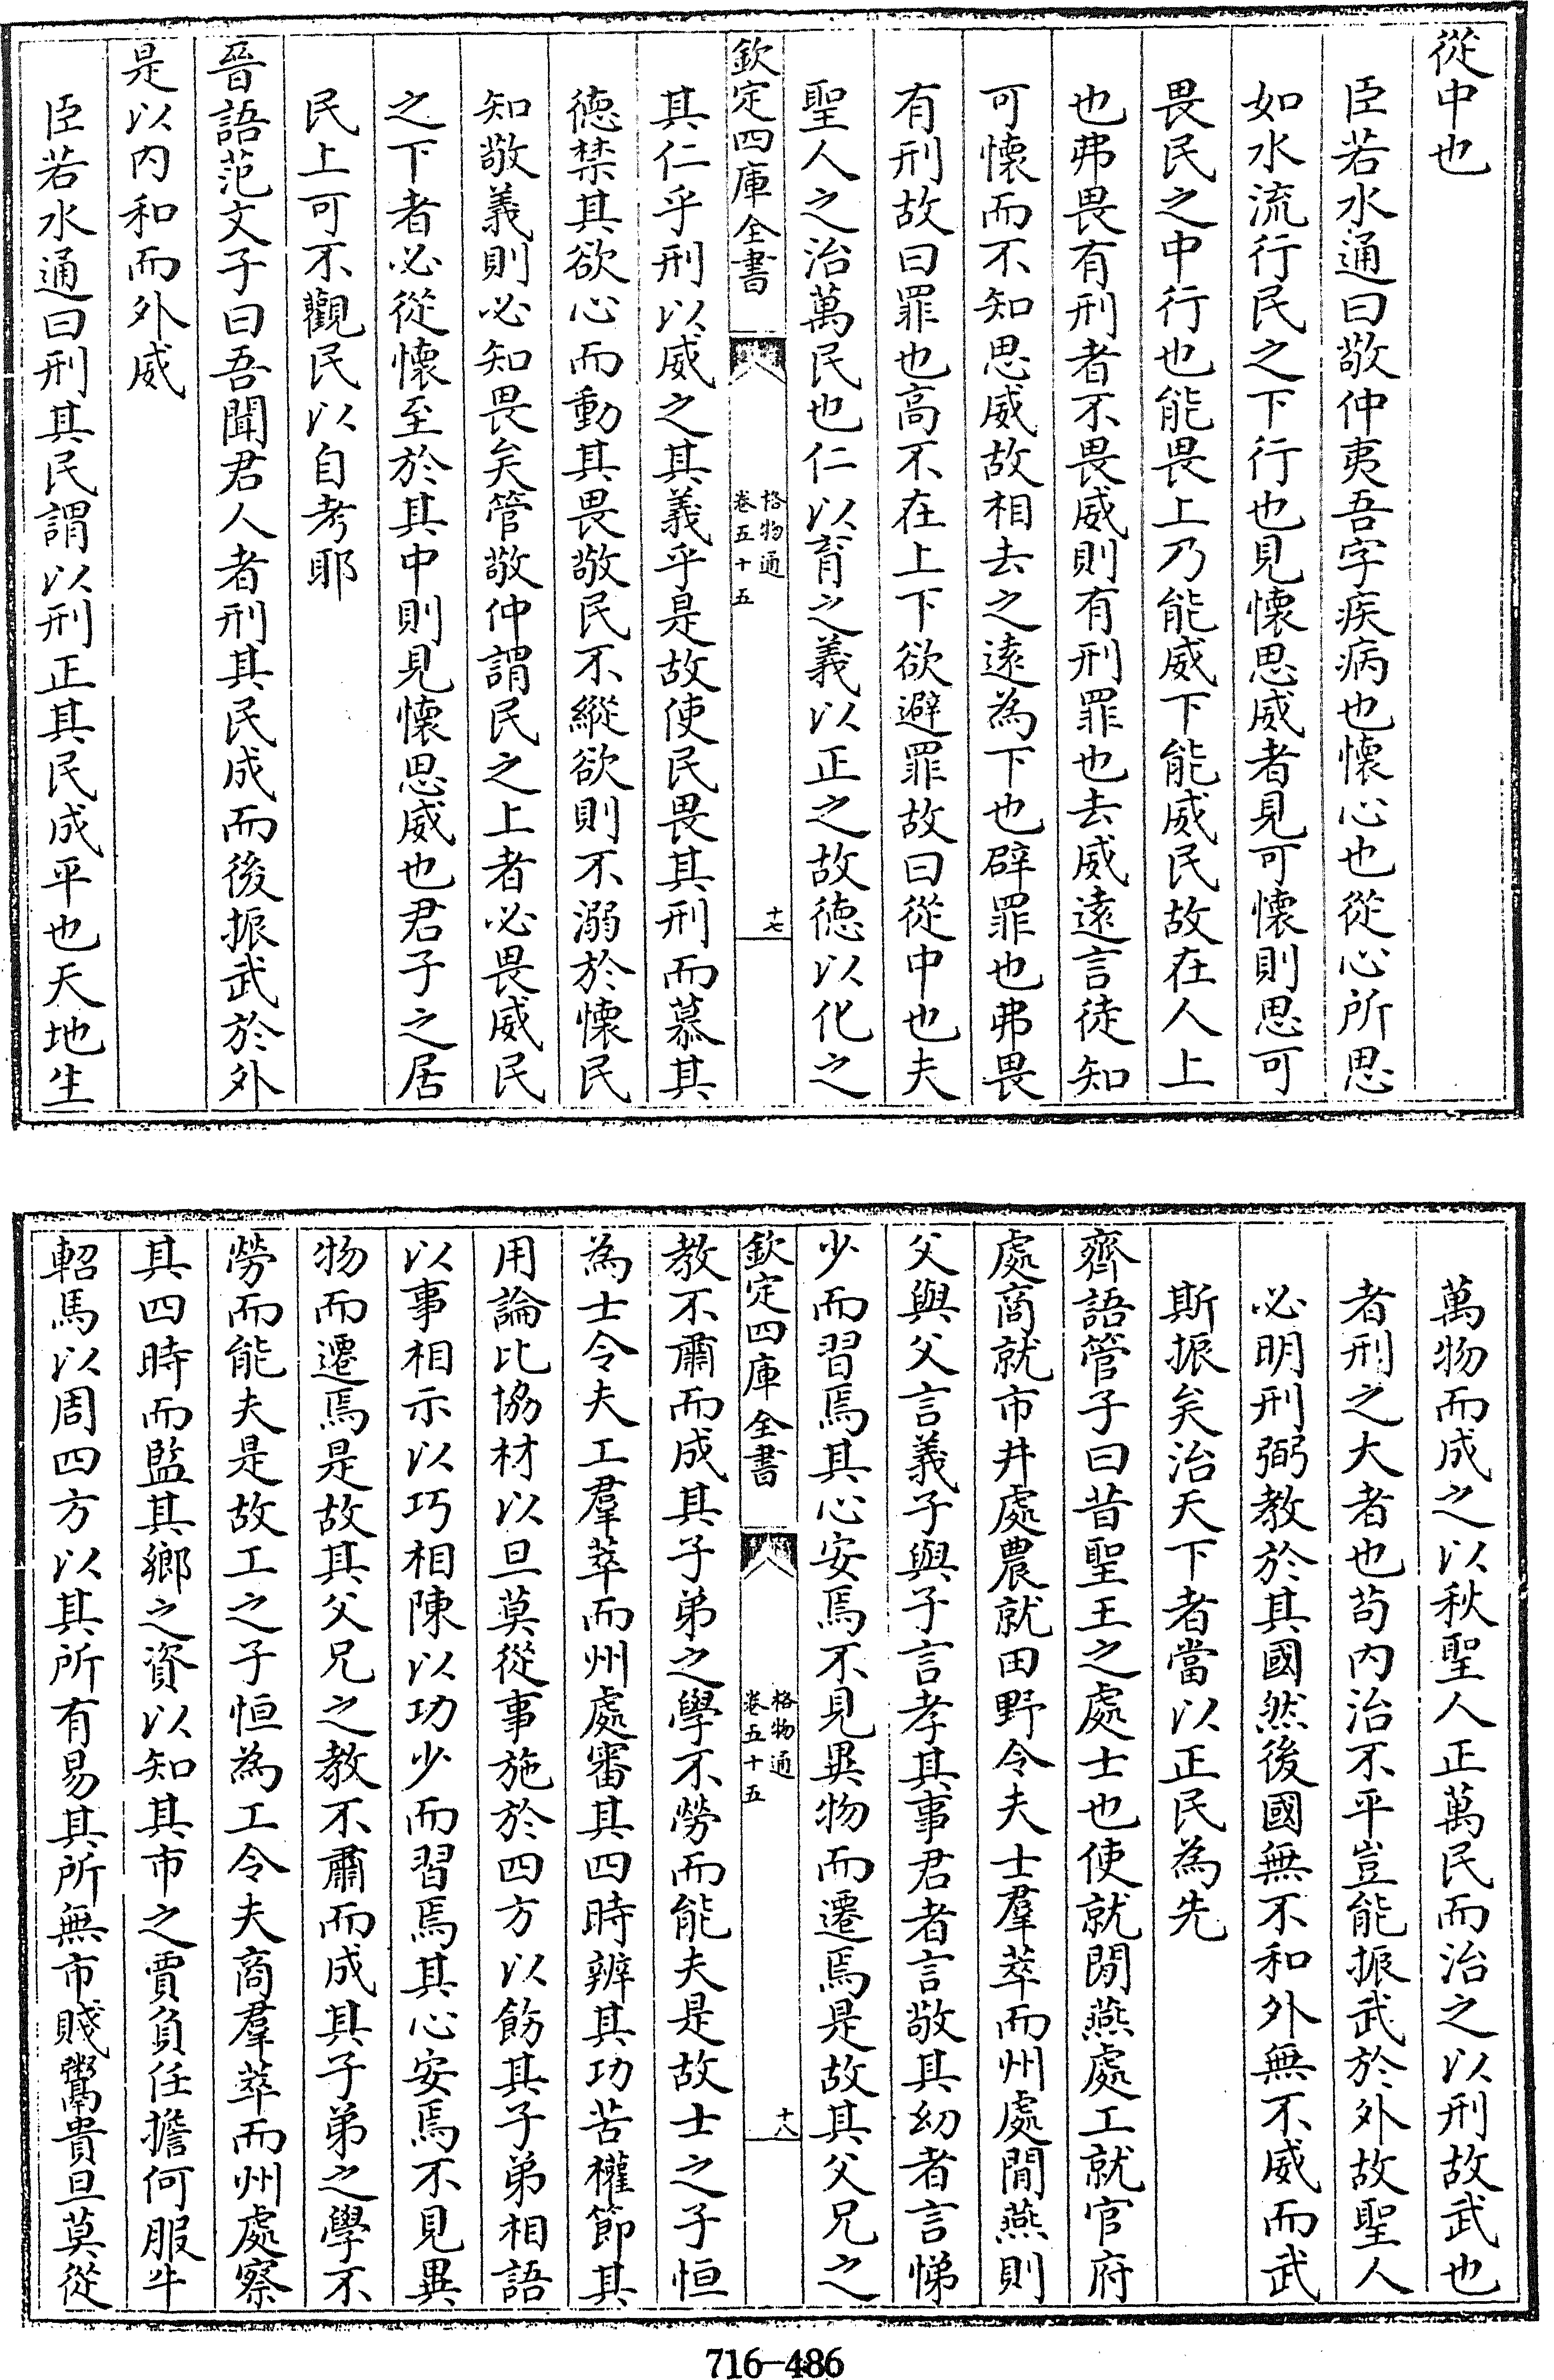 從中也
臣若水通曰敬仲夷吾字疾病也懷心也從心所思
如水流行民之下行也見懷思威者見可懷則思可
畏民之中行也能畏上乃能威下能威民故在人上
也弗畏有刑者不畏威則有刑罪也去威遠言徒知
可懷而不知思威故相去之遠為下也辟罪也弗畏
有刑故曰罪也高不在上下欲避罪故曰從中也夫
聖人之治萬民也仁以育之義以正之故德以化之
欽定四庫全書
格物通
卷五十五
十七
其仁乎刑以威之其義乎是故使民畏其刑而慕其
德禁其欲心而動其畏敬民不縱欲則不溺於懷民
知敬義則必知畏矣管敬仲謂民之上者必畏威民
之下者必從懷至於其中則見懷思威也君子之居
民上可不觀民以自考耶
晉語范文子曰吾聞君人者刑其民成而後振武於外
是以內和而外威
臣若水通曰刑其民謂以刑正其民成平也天地生
萬物而成之以秋聖人正萬民而治之以刑故武也
者刑之大者也苟內治不平豈能振武於外故聖人
必明刑弼教於其國然後國無不和外無不威而武
斯振矣治天下者當以正民為先
齊語管子曰昔聖王之處士也使就閒燕處工就官府
處商就市井處農就田野令夫士羣萃而州處閒燕則
父與父言義子與子言孝其事君者言敬其幼者言悌
少而習焉其心安焉不見異物而遷焉是故其父兄之
欽定四庫全書
格物通
卷五十五
十八
教不肅而成其子弟之學不勞而能夫是故士之子恒
為士令夫工羣萃而州處審其四時辨其功苦權節其
用論比協材以旦莫從事施於四方以飭其子弟相語
以事相示以巧相陳以功少而習焉其心安焉不見異
物而遷焉是故其父兄之教不肅而成其子弟之學不
勞而能夫是故工之子恒為工令夫商羣萃而州處察
其四時而監其鄉之資以知其市之賈負任擔何服牛
軺馬以周四方以其所有易其所無市賤鬻貴旦莫從
716-486